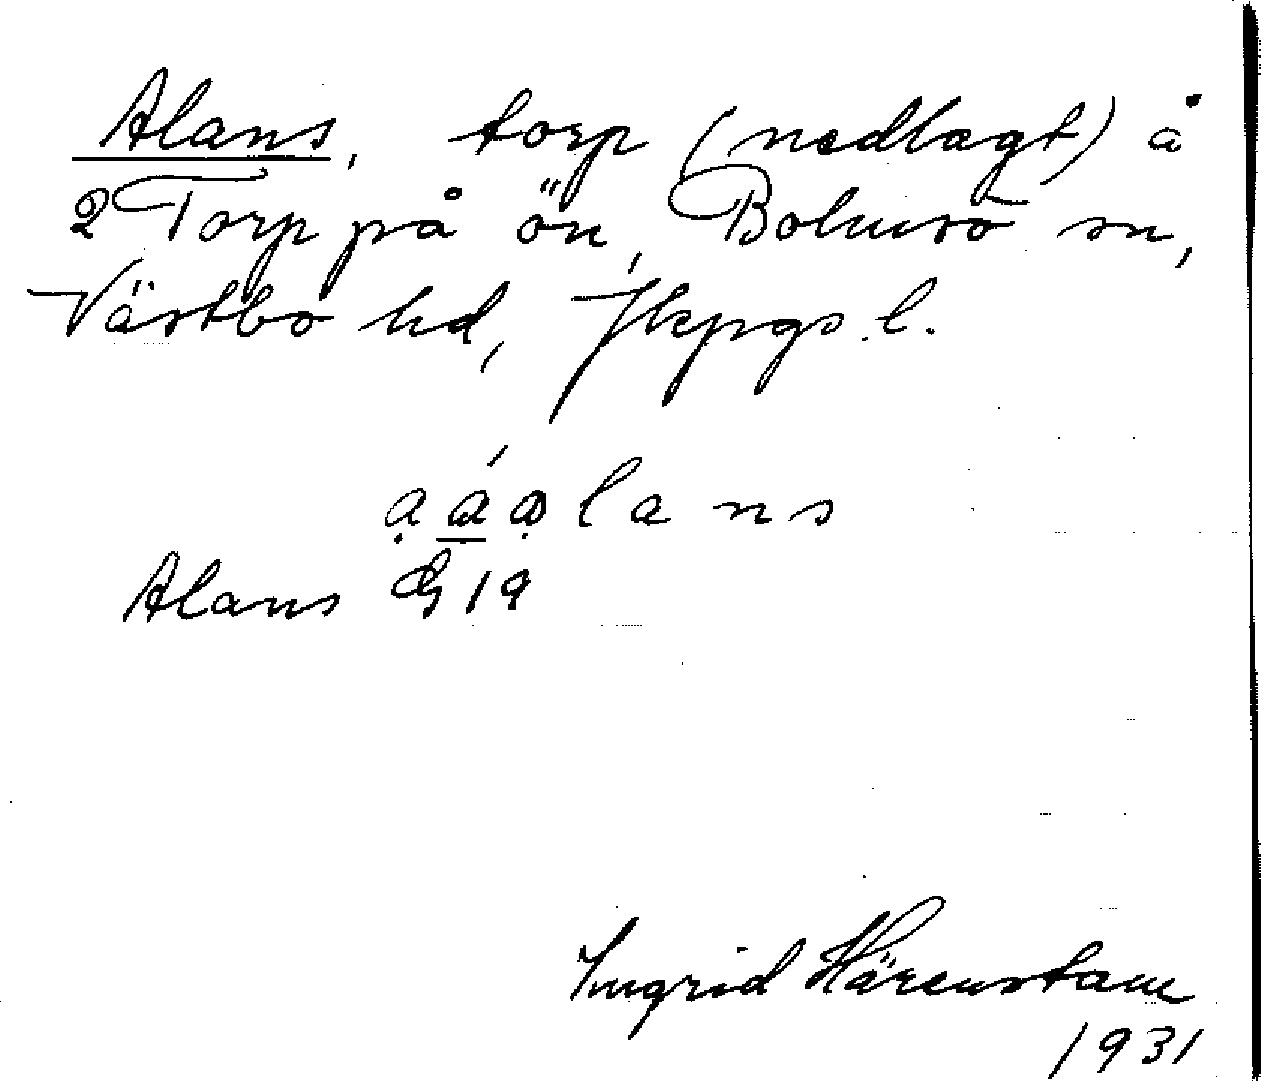 Alans, torp (nedlagt) å
2 Torp på ön, Bolmsö sn,
Västbo hd, Jkpgs. l.
a̤ á̲ ạ l a n s
Alans G 19
Ingrid Härenstam
1931